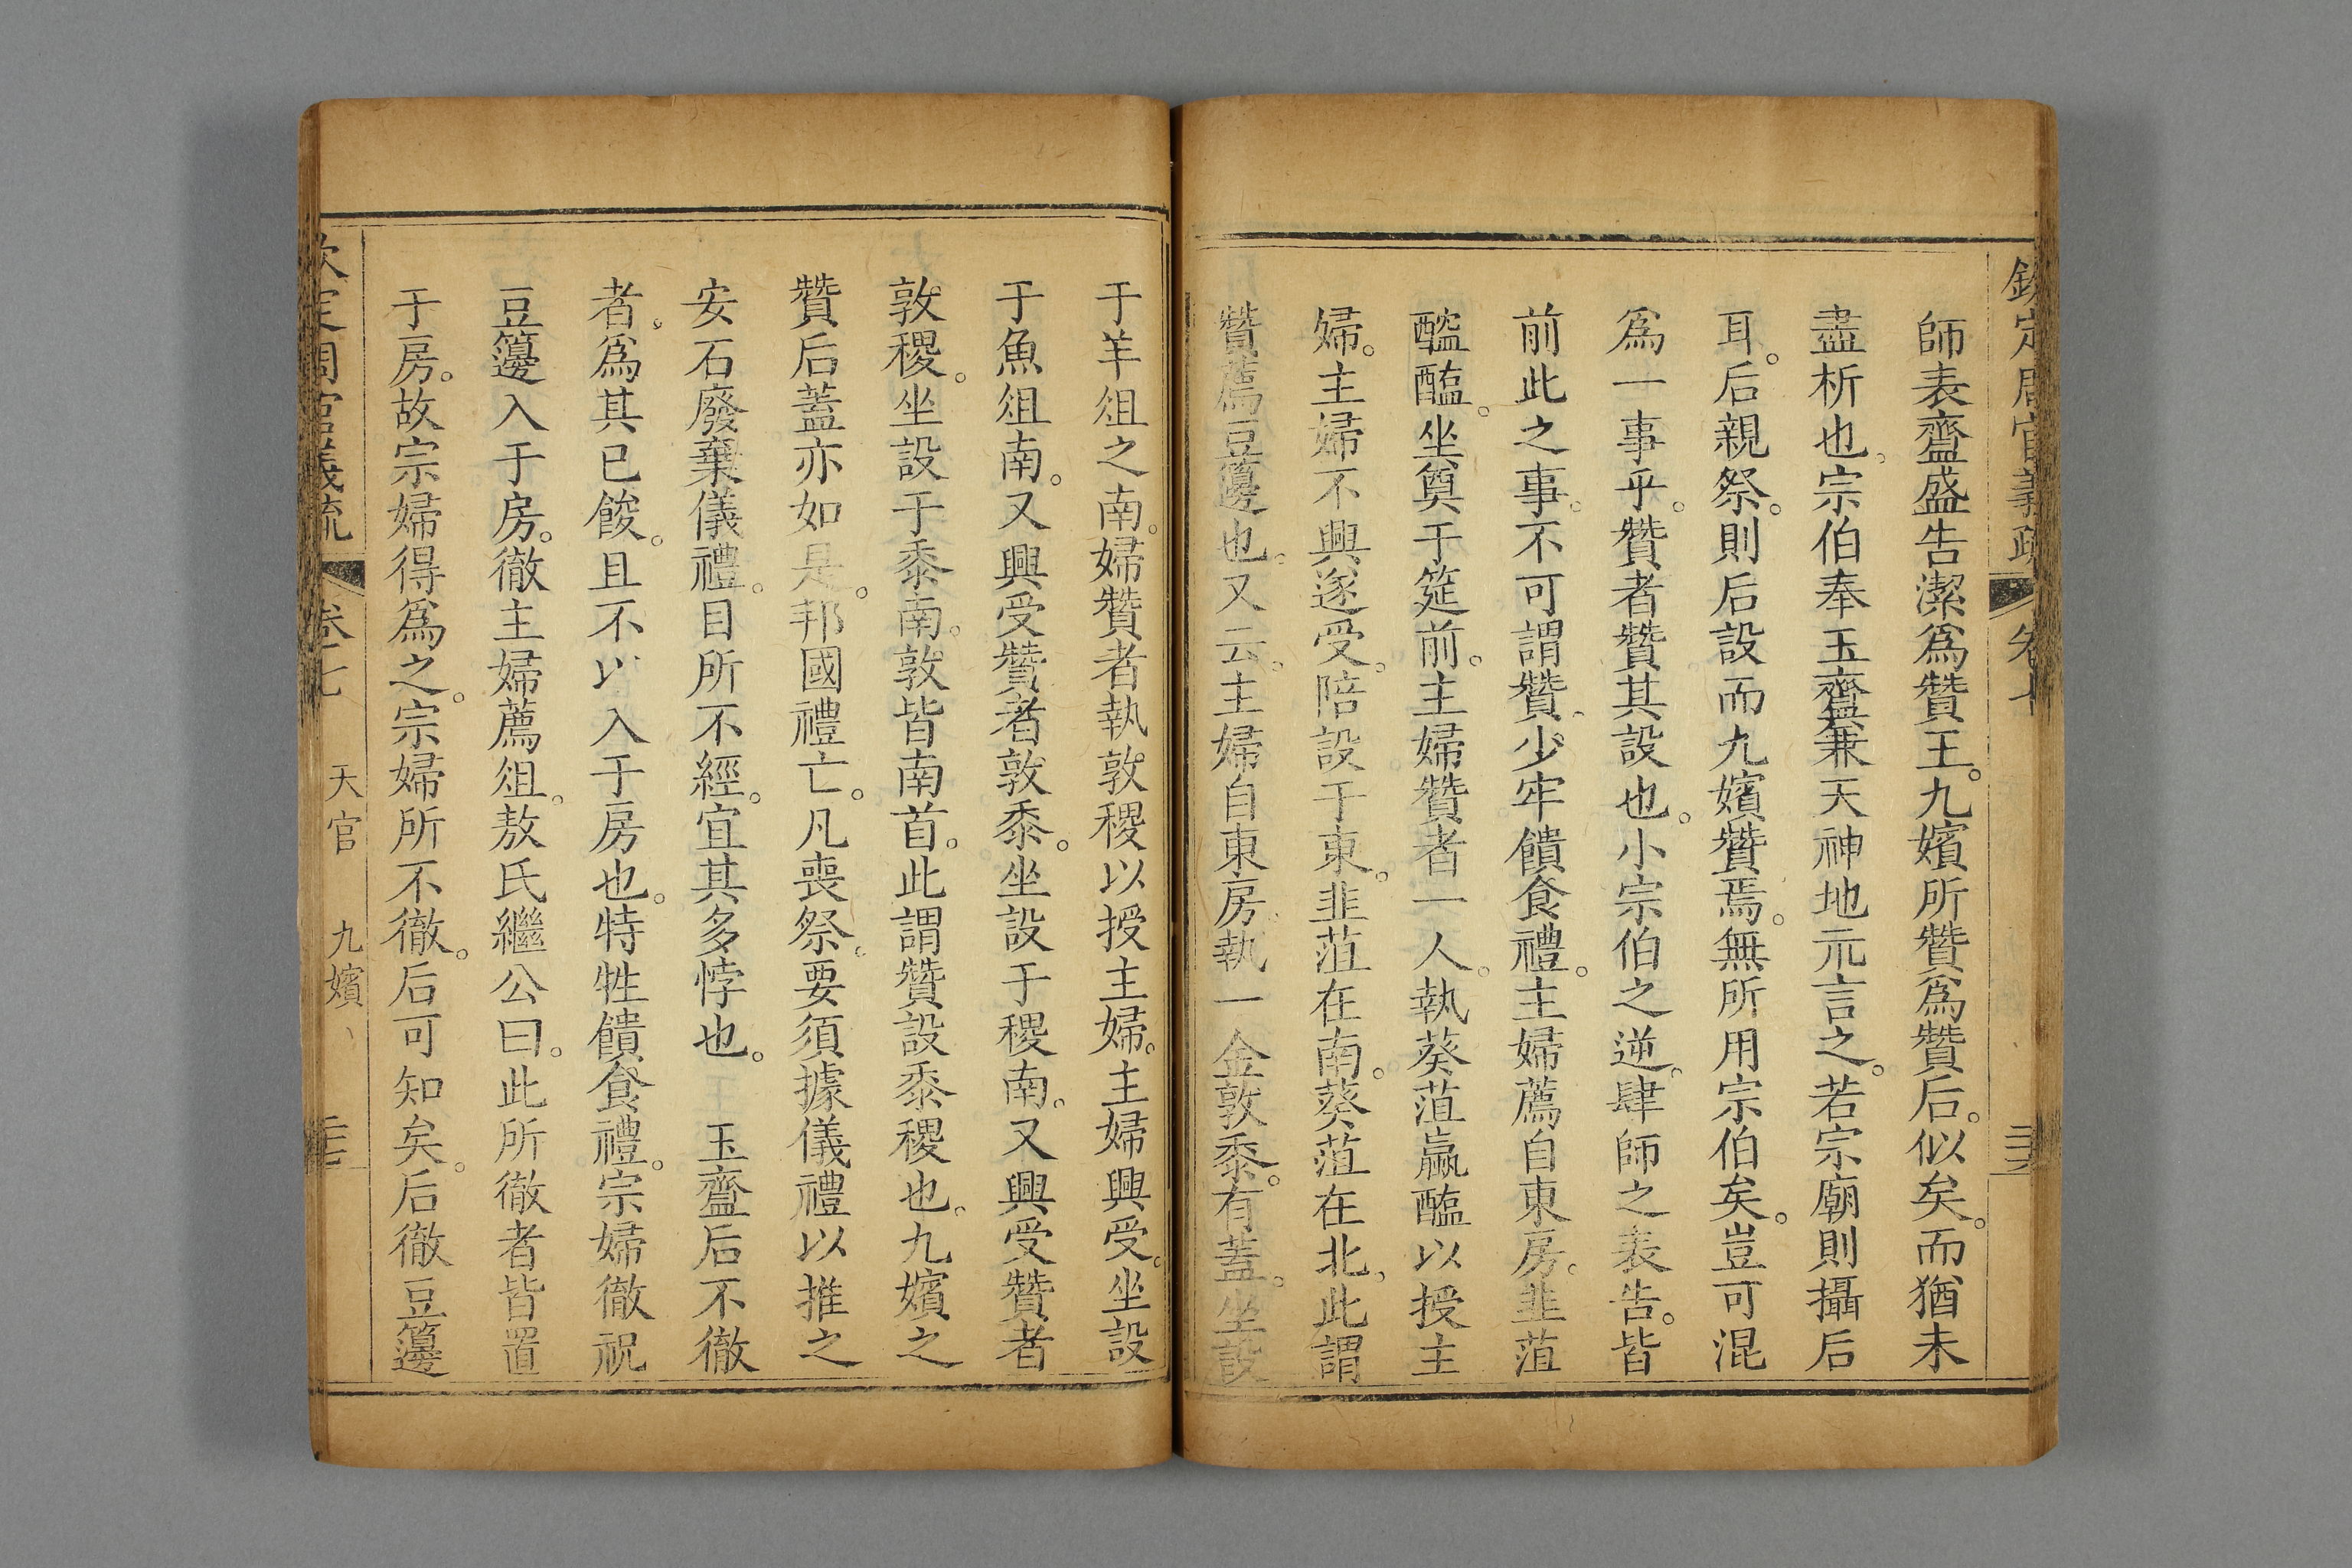 欽定周官義疏 卷七 三十六
師表齍盛告潔爲贊王。九嬪所贊爲贊后。似矣。而猶未
盡析也。宗伯奉玉齍兼天神地示言之。若宗廟則攝后
耳。后親祭。則后設而九嬪贊焉。無所用宗伯矣。豈可混
爲一事乎。贊者贊其設也。小宗伯之逆。肆師之表告。皆
前此之事。不可謂贊。少牢饋食禮。主婦薦自東房。韭菹
醓醢。坐奠于筵前。主婦贊者一人。執葵菹蠃醢以授主
婦。主婦不興遂受。陪設于東。韭菹在南。葵菹在北。此謂
贊薦豆籩也。又云。主婦自東房。執一金敦黍。有蓋。坐設
于羊俎之南。婦贊者執敦稷以授主婦。主婦興受。坐設
于魚俎南。又興受贊者敦黍。坐設于稷南。又興受贊者
敦稷。坐設于黍南。敦皆南首。此謂贊設黍稷也。九嬪之
贊后蓋亦如是。邦國禮亡。凡喪祭。要須據儀禮以推之
安石廢棄儀禮。目所不經。宜其多悖也。 玉齍后不徹
者。爲其已餕。且不以入于房也。特牲饋食禮。宗婦徹祝
豆籩入于房。徹主婦薦俎。敖氏繼公曰。此所徹者皆置
于房。故宗婦得爲之。宗婦所不徹。后可知矣。后徹豆籩
欽定周官義疏 卷七 天官 九嬪 三十七